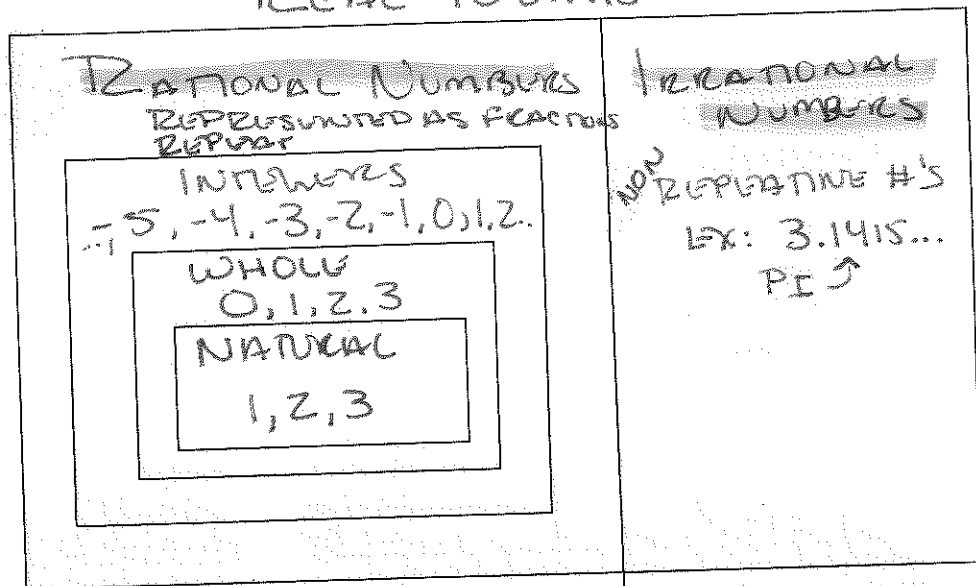 RATIONAL NUMBERS
REPRESENTED AS FRACTIONS
REPEAT
INTEGERS
..., -5, -4, -3, -2, -1, 0, 1, 2..
WHOLE
0, 1, 2, 3
NATURAL
1, 2, 3
IRRATIONAL
NUMBERS
NON REPEATING #'S
EX: 3.1415...
PI